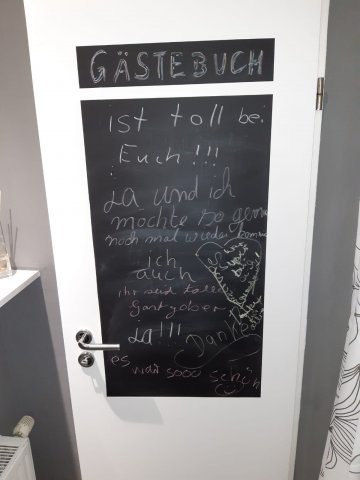 GÄSTEBUCH
ist toll bei
Euch!!!
La und ich
möchte so gerne
noch mal wieder kommen
ich
auch
ihr seid tolle
Gastgeber
La!!!
Danke
es
war sooo schön